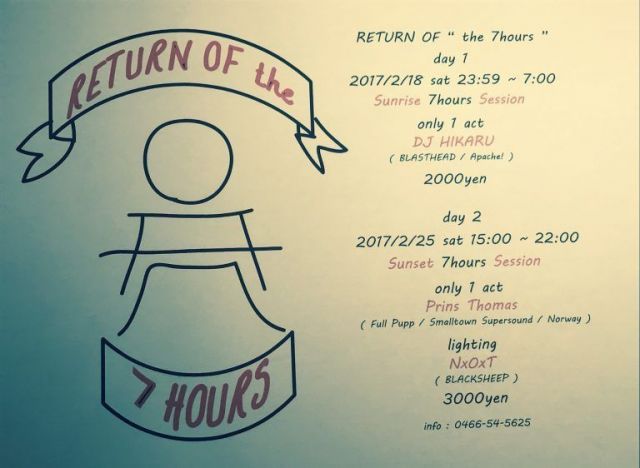 RETURN OF the
7 HOURS
RETURN OF “ the 7hours ”
day 1
2017/2/18 sat 23:59 ~ 7:00
Sunrise 7hours Session
only 1 act
DJ HIKARU
( BLASTHEAD / Apache! )
2000yen
day 2
2017/2/25 sat 15:00 ~ 22:00
Sunset 7hours Session
only 1 act
Prins Thomas
( Full Pupp / Smalltown Supersound / Norway )
lighting
NxOxT
( BLACKSHEEP )
3000yen
info : 0466-54-5625